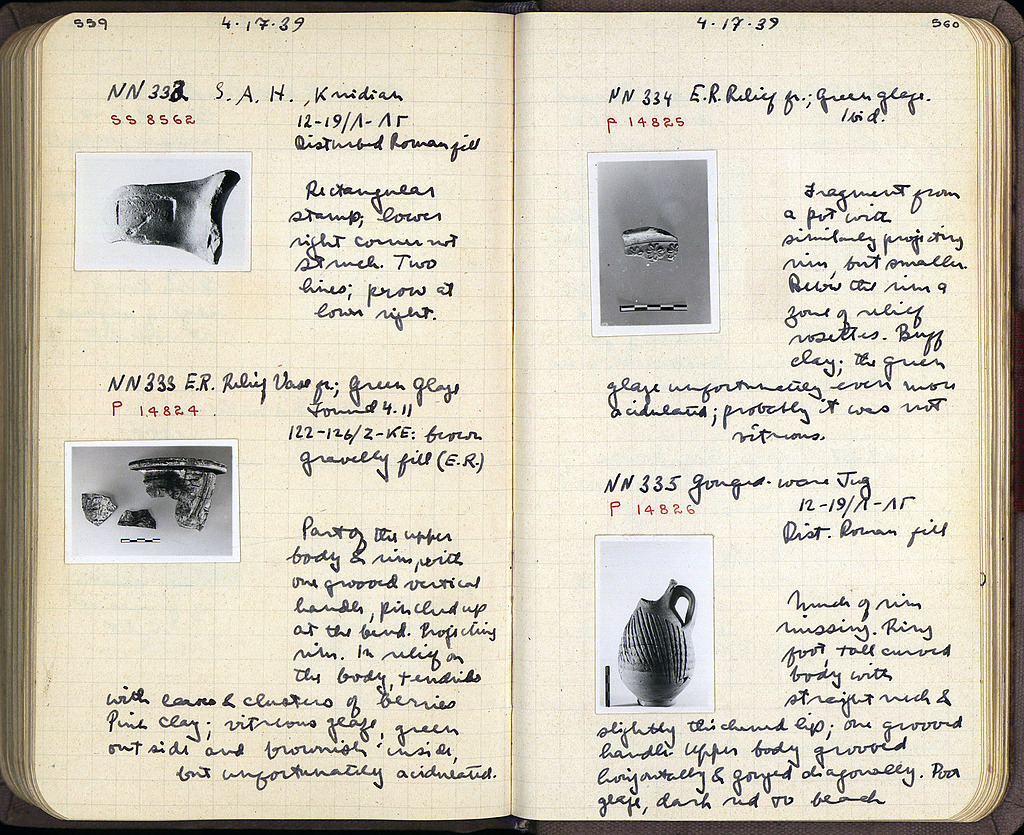 559
4-17-39
NN 332 S.A.H., Knidian
SS 8562
12-19/Λ-ΛΕ
Disturbed Roman fill
Rectangular
stamp, lower
right corner not
struck. Two
lines; prow at
lower right.
NN 333 E.R. Relief Vase fr.; Green Glaze
P 14824
Found 4.11
122-126/Z-KE: brown
gravelly fill (E.R.)
Part of the upper
body & rim, with
one grooved vertical
handle, pinched up
at the bend. Projecting
rim. In relief on
the body, tendrils
with leaves & clusters of berries
Pink clay; vitreous glaze, green
outside and brownish inside,
but unfortunately acidulated.
4-17-39
560
NN 334 E.R. Relief fr.; Green glaze.
P 14825
Ibid.
Fragment from
a pot with
similarly projecting
rim, but smaller.
Below the rim a
zone of relief
rosettes. Buff
clay; the green
glaze unfortunately even more
acidulated; probably it was not
vitreous.
NN 335 Gouged-ware Jug
P 14826
12-19/Λ-ΛΕ
Dist. Roman fill
Much of rim
missing. Ring
foot, tall curved
body with
straight neck &
slightly thickened lip; one grooved
handle. Upper body grooved
horizontally & gouged diagonally. Poor
glaze, dark red to black